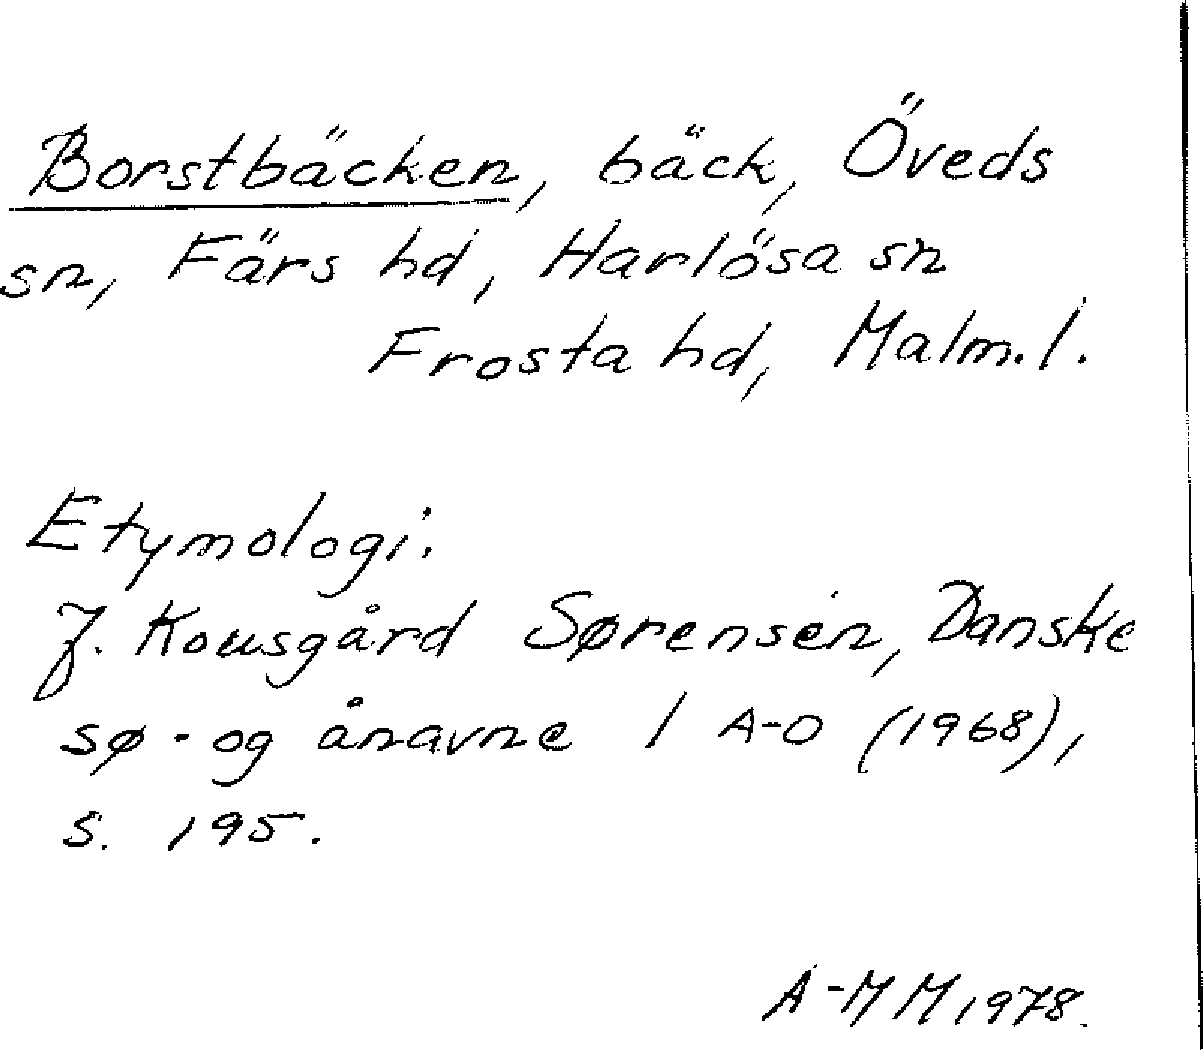 Borstbäcken, bäck, Öveds
sn, Färs hd, Harlösa sn
Frosta hd, Malm. l.
Etymologi:
J. Kousgård Sørensen, Danske
sø- og ånavne 1 A-O (1968),
s. 195.
A-MM 1978.